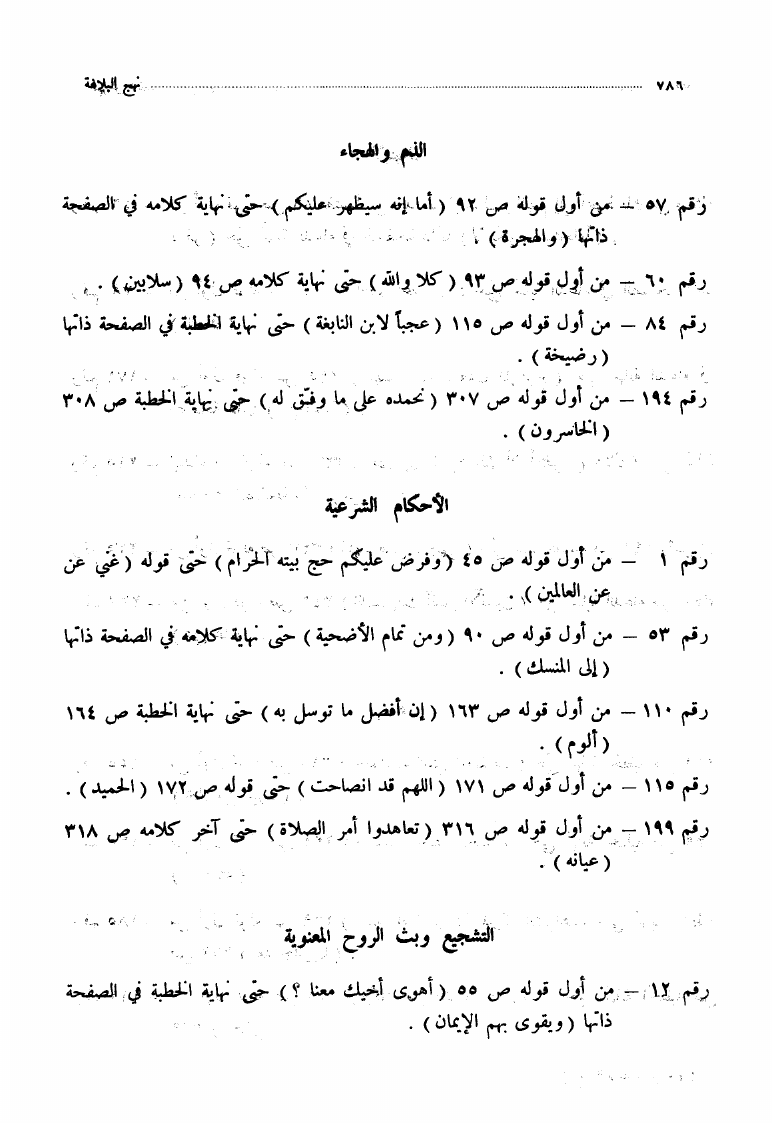 ٧٨٦ ................ نهج البلاغة
الذم والهجاء
رقم ٥٧ – من أول قوله ص ٩٢ ( أما إنه سيظهر عليكم ) حتى نهاية كلامه في الصفحة
ذاتها ( والهجرة ) .
رقم ٦٠ – من أول قوله ص ٩٣ ( كلا والله ) حتى نهاية كلامه ص ٩٤ ( سلابين ) .
رقم ٨٤ – من أول قوله ص ١١٥ ( عجباً لابن النابغة ) حتى نهاية الخطبة في الصفحة ذاتها
( رضيخة ) .
رقم ١٩٤ – من أول قوله ص ٣٠٧ ( نحمده على ما وفّق له ) حتى نهاية الخطبة ص ٣٠٨
( الخاسرون ) .
الأحكام الشرعية
رقم ١ – من أول قوله ص ٤٥ ( وفرض عليكم حج بيته الحرام ) حتى قوله ( غني عن
عن العالمين ) .
رقم ٥٣ – من أول قوله ص ٩٠ ( ومن تمام الأضحية ) حتى نهاية كلامه في الصفحة ذاتها
( إلى المنسك ) .
رقم ١١٠ – من أول قوله ص ١٦٣ ( إن أفضل ما توسل به ) حتى نهاية الخطبة ص ١٦٤
( ألوم ) .
رقم ١١٥ – من أول قوله ص ١٧١ ( اللهم قد انصاحت ) حتى قوله ص ١٧٢ ( الحميد ) .
رقم ١٩٩ – من أول قوله ص ٣١٦ ( تعاهدوا أمر الصلاة ) حتى آخر كلامه ص ٣١٨
( عيانه ) .
التشجيع وبث الروح المعنوية
رقم ١٢ – من أول قوله ص ٥٥ ( أهوى أخيك معنا ؟ ) حتى نهاية الخطبة في الصفحة
ذاتها ( ويقوى بهم الإيمان ) .